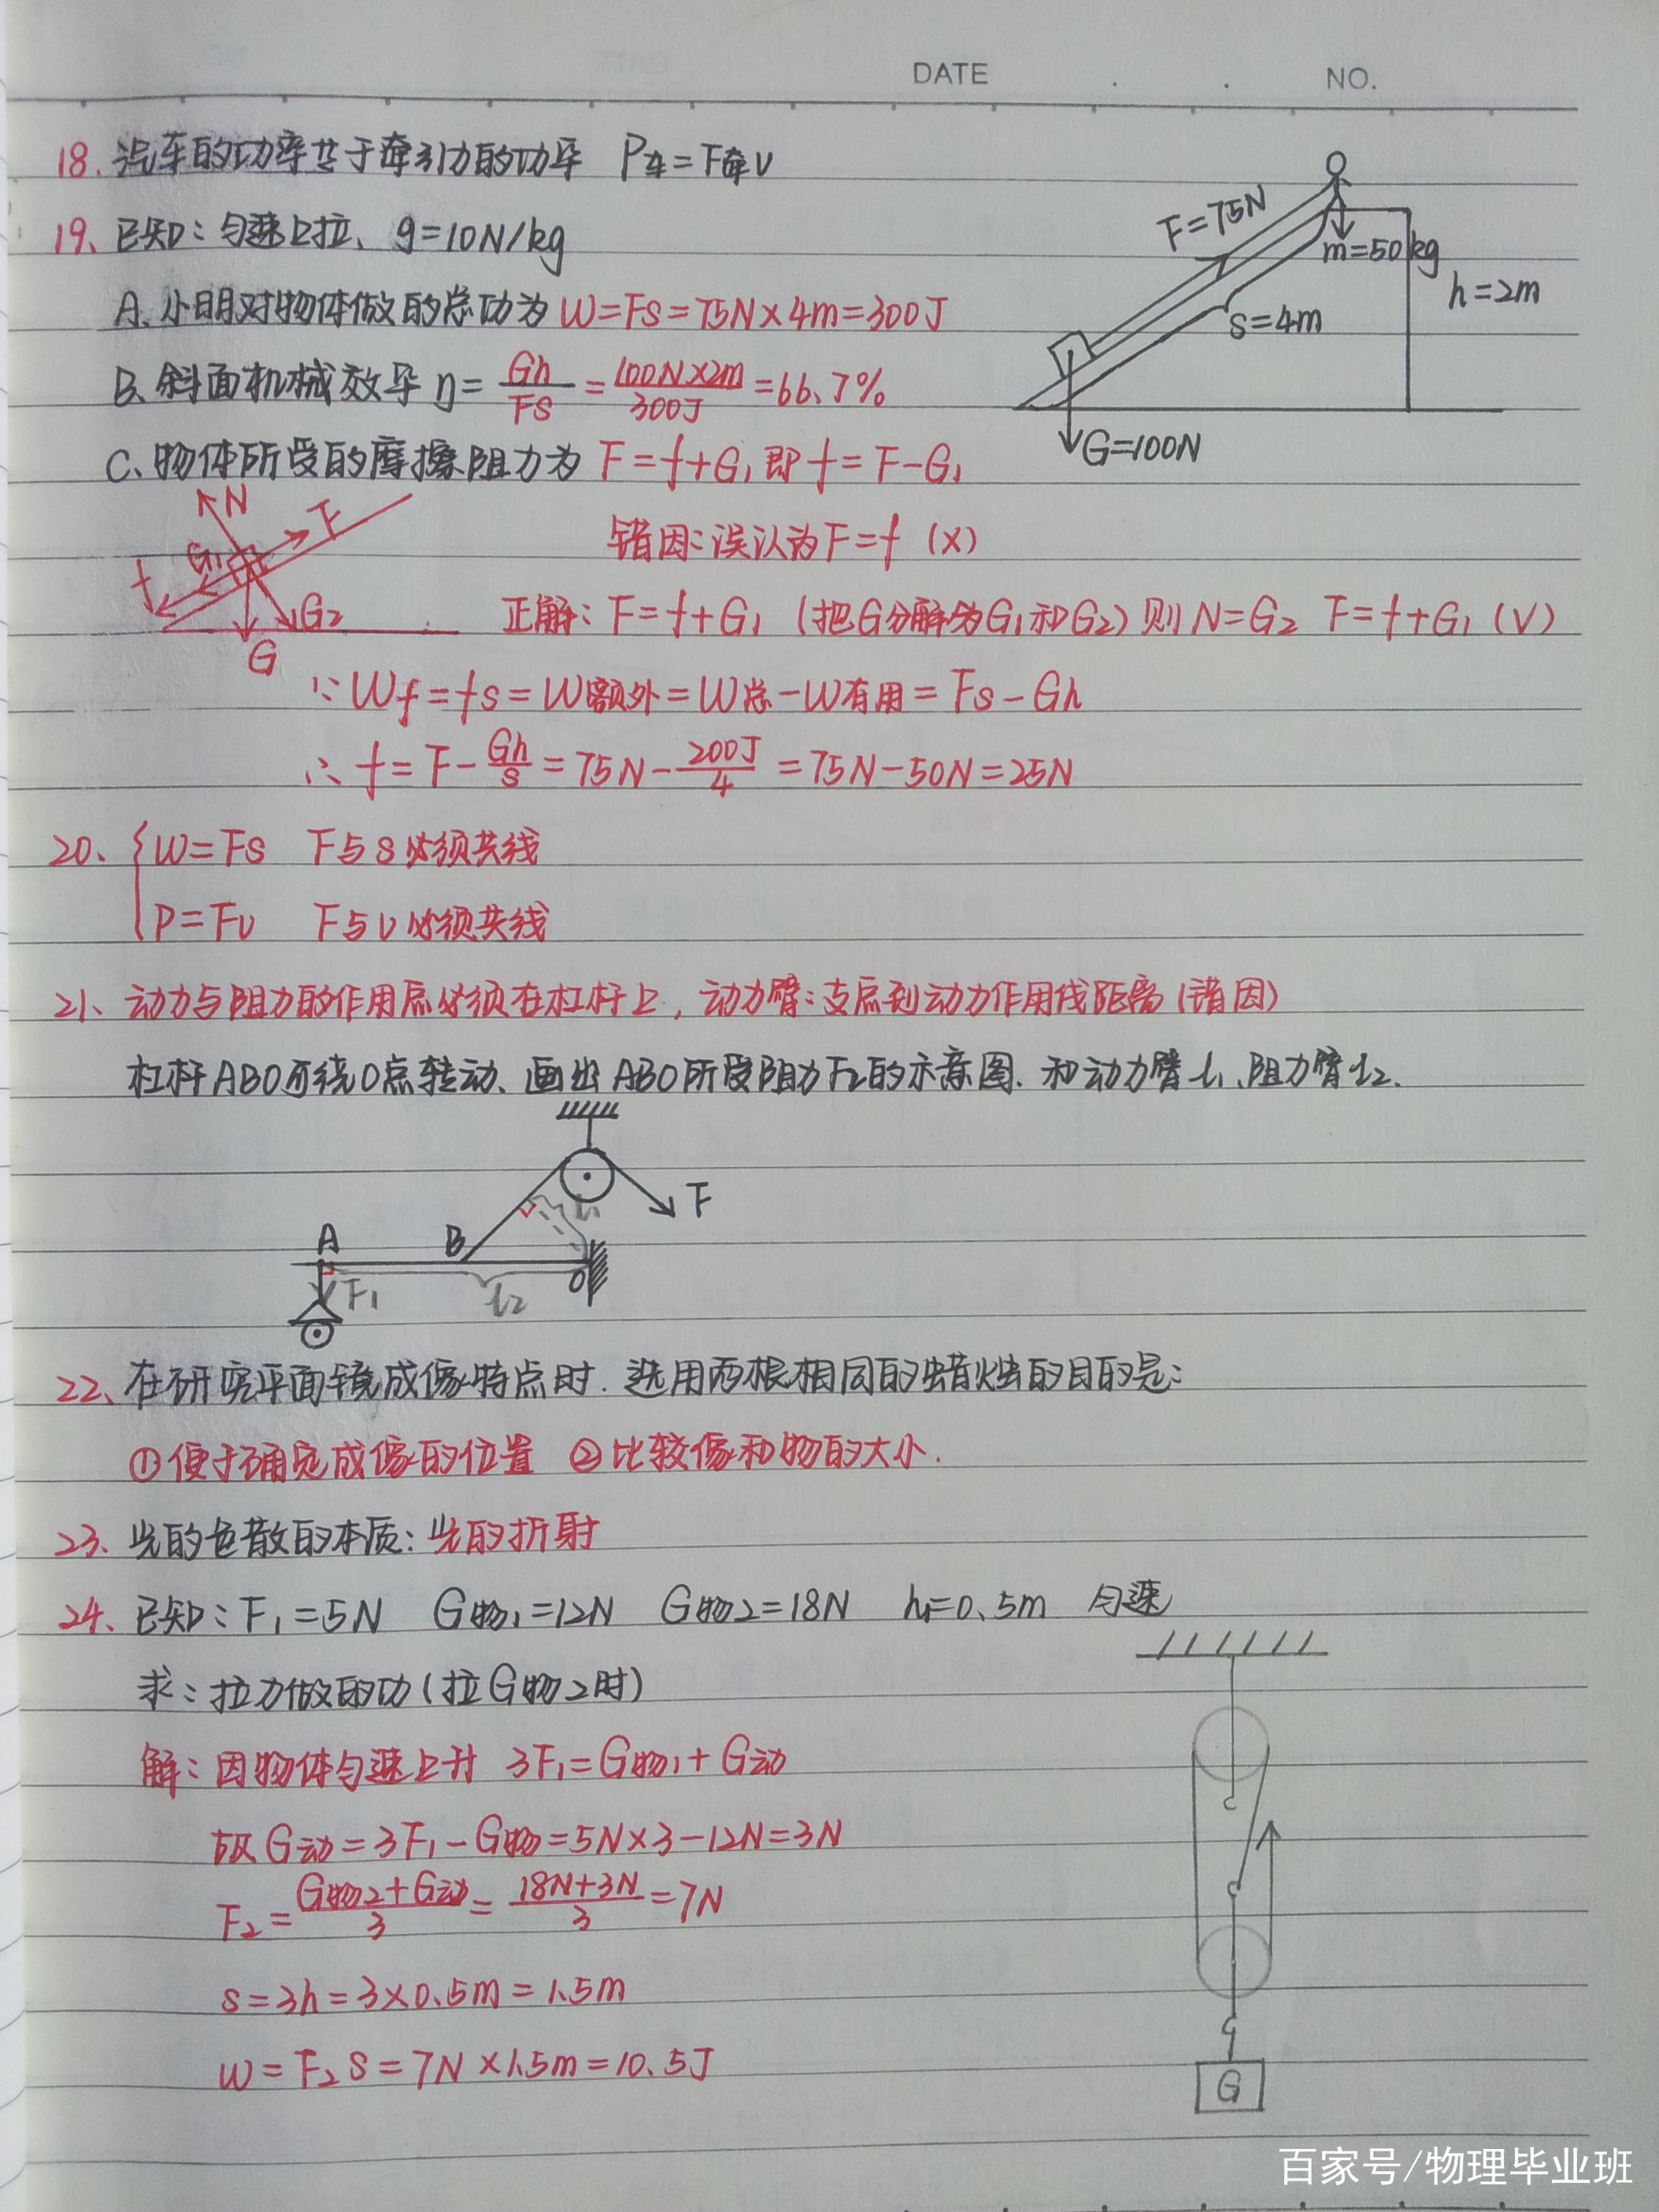 DATE . . NO.
18. 汽车的功率等于牵引力的功率 P车=F牵v
19、已知:匀速上拉、g=10N/kg
F=75N
m=50kg
h=2m
s=4m
G=100N
A、小明对物体做的总功为 W=Fs=75N×4m=300J
B、斜面机械效率 η=Gh/Fs=100N×2m/300J=66.7%
C、物体所受的摩擦阻力为 F=f+G₁即f=F-G₁
N F
f G₁ G₂
G
错因:误认为F=f (×)
正解:F=f+G₁ (把G分解为G₁和G₂)则N=G₂ F=f+G₁(√)
∵Wf=fs=W额外=W总-W有用=Fs-Gh
∴f=F-Gh/s=75N-200J/4=75N-50N=25N
20、{W=Fs F与s必须共线
P=Fv F与v必须共线
21、动力与阻力的作用点必须在杠杆上,动力臂:支点到动力作用线距离(错因)
杠杆ABO可绕O点转动、画出ABO所受阻力F₂的示意图.和动力臂l₁、阻力臂l₂.
F
l₁
A B O
F₁ l₂
22、在研究平面镜成像特点时.选用两根相同的蜡烛的目的是:
①便于确定成像的位置 ②比较像和物的大小.
23、光的色散的本质:光的折射
24、已知:F₁=5N G物₁=12N G物2=18N h=0.5m 匀速
求:拉力做的功(拉G物2时)
解:因物体匀速上升 3F₁=G物₁+G动
故G动=3F₁-G物=5N×3-12N=3N
F₂=G物2+G动/3=18N+3N/3=7N
s=3h=3×0.5m=1.5m
W=F₂s=7N×1.5m=10.5J
G
百家号/物理毕业班